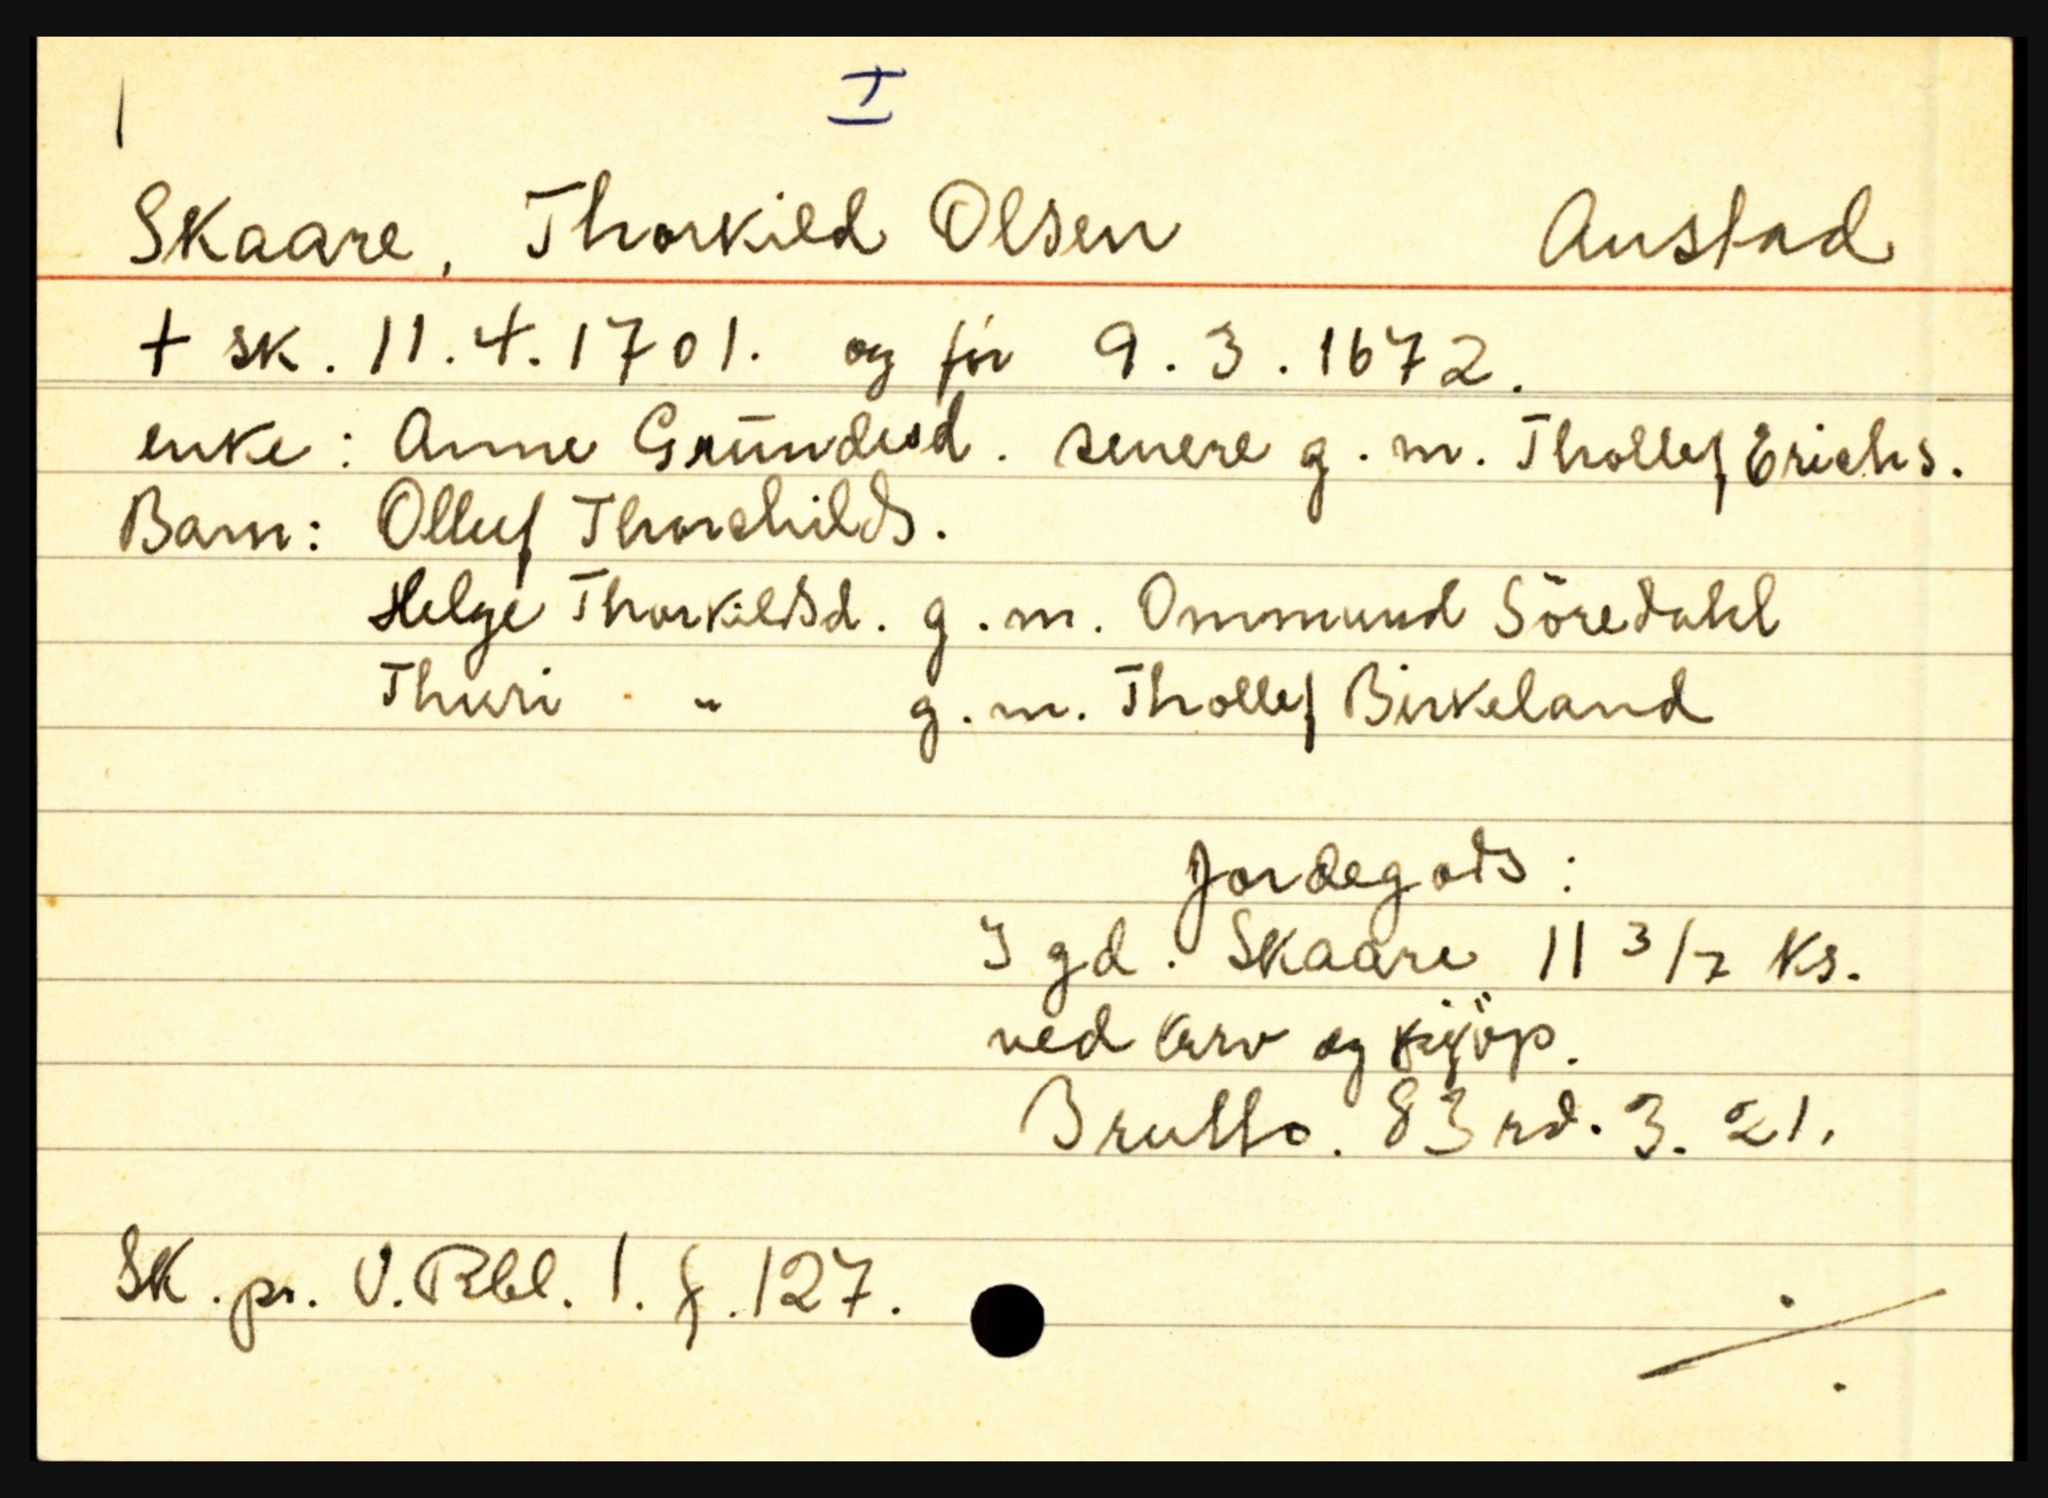 I
Skaare, Thorkild Olsen Austad
+ sk. 11.4.1701. og før 9.3.1672.
enke: Anne Gründesd. senere g.m. Thollef Erichs.
Barn: Olluf Thorchilds.
Helge Thorkildsd. g.m. Ommund Söredahl
Thuri " g.m. Thollef Birkeland
Jordegods:
I gd. Skaare 11 3/7 Ks.
ved arv og kjöp.
Brutto. 83 rd. 3. 21.
SK. pr. V. Rbl. 1. f. 127.